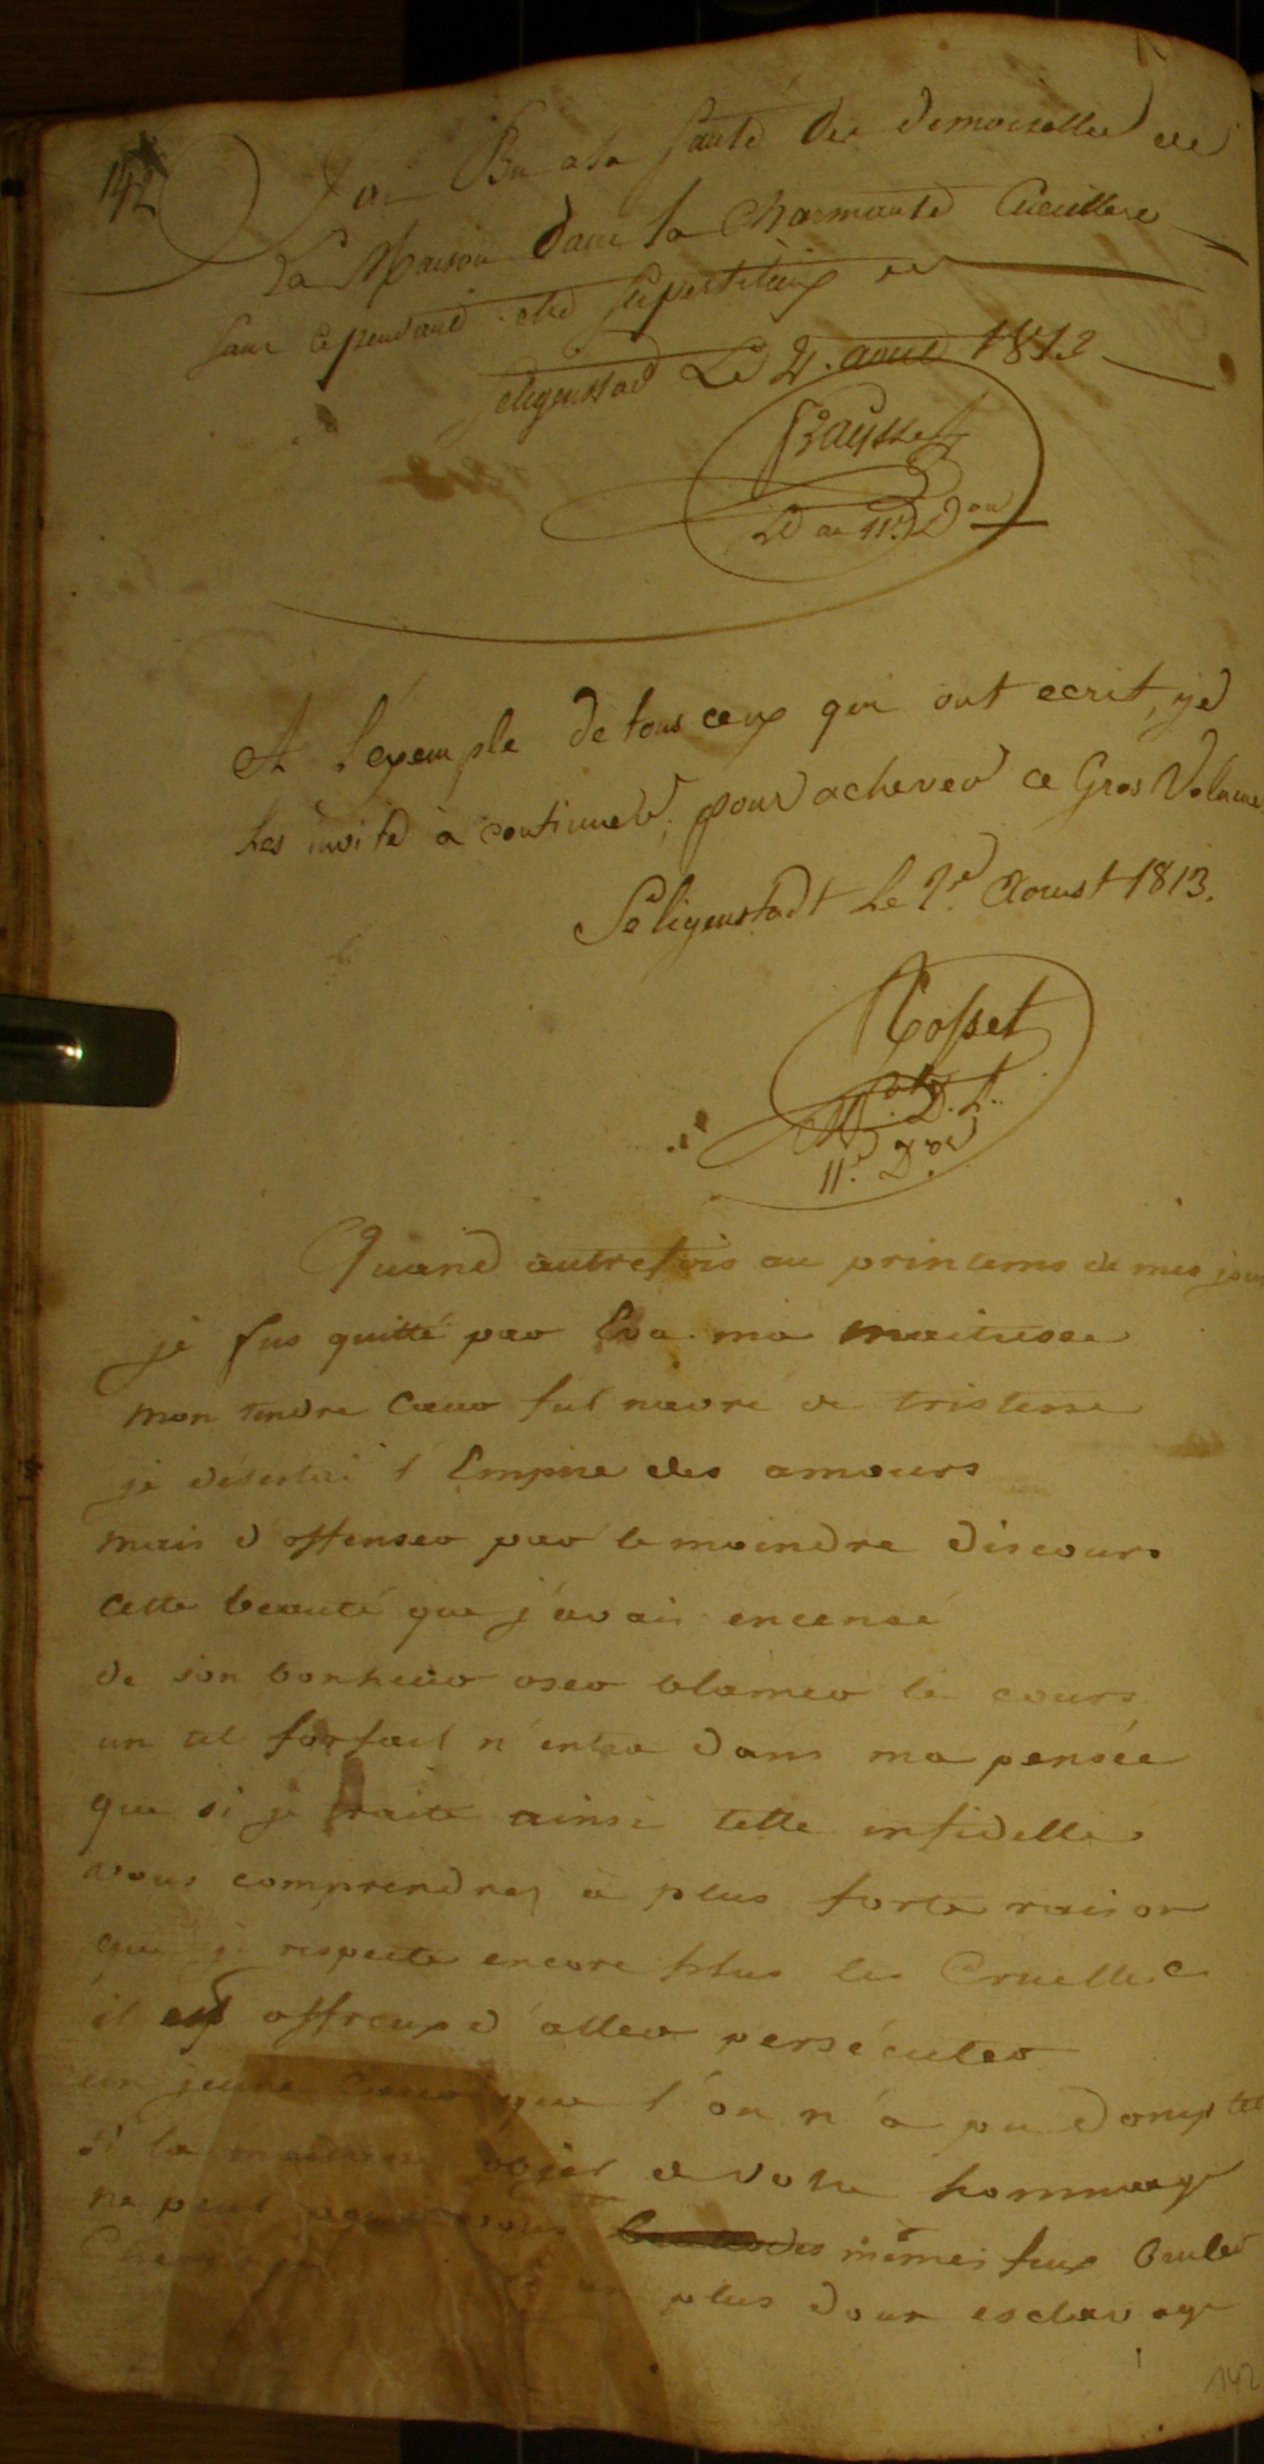 142
J'ai Bu a la santé des demoiselles de
la Maison dans la Charmante Cueillere
sans cependant etre superstitieux
Seligenstad Le 2. aout 1813
11e Don
A l'exemple de tous ceux qui ont ecrit, je
les invite à continuer, pour achever ce Gros Volume
Seligenstadt le 2e Aoust 1813.
Rosset
11e
Quand autrefois au printems de mes jours
je fus quitté par Eva ma maitresse
mon tendre Cœur fut navré de tristesse
je désertai l'Empire des amours
mais d'offenser par le moindre discours
cette beauté que j'avais encensé
de son bonheur oser blamer le cours
un tel forfait n'entra dans ma pensée
que si je traite ainsi telle infidelle
vous comprendrez à plus forte raison
que je respecte encore plus les Cruelles
il est affreux d'aller persécuter
un jeune Cœur que l'on n'a pu dompter
si la maitresse objet de votre hommage
ne peut pour vous des mêmes feux bruler
plus doux esclavage
142